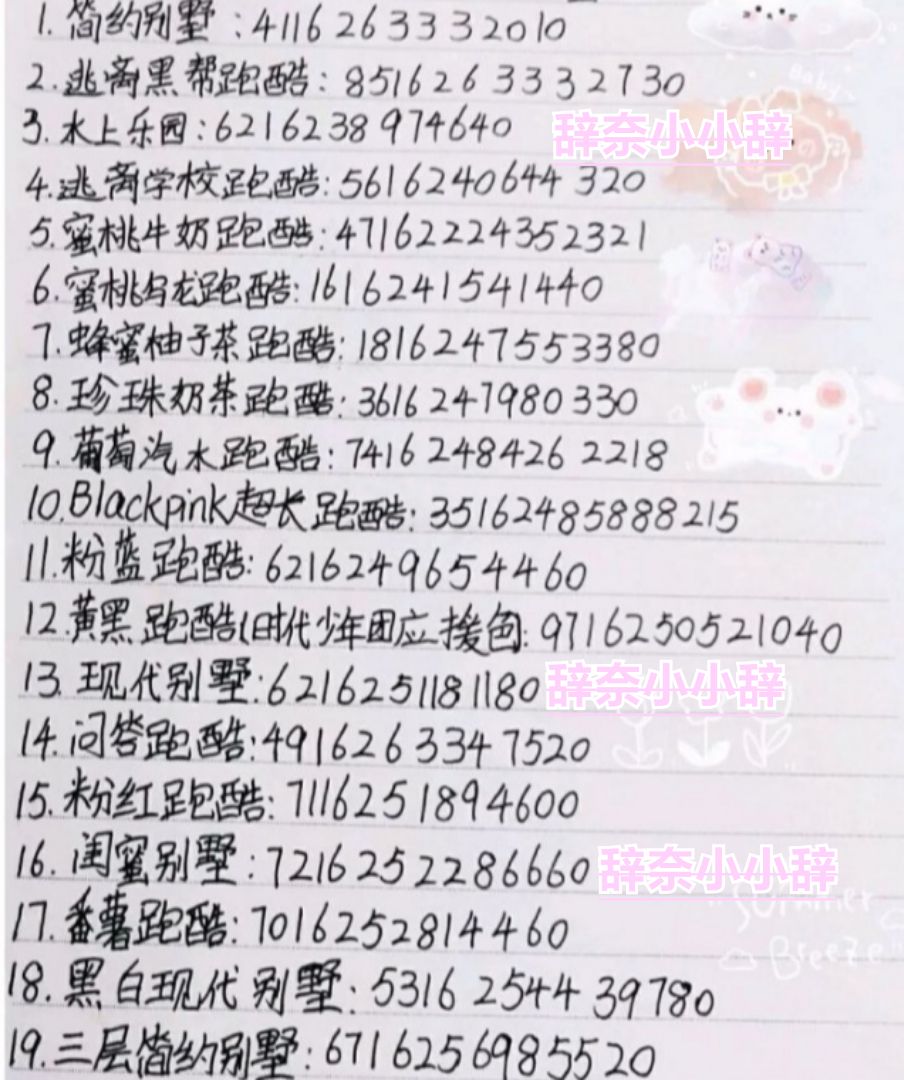 1. 简约别墅:4116263332010
2. 逃离黑帮跑酷:8516263332730
3. 水上乐园:6216238974640 辞奈小小辞
Baby
4. 逃离学校跑酷:5616240644320
5. 蜜桃牛奶跑酷:47162224352321
6. 蜜桃乌龙跑酷:1616241541440
7. 蜂蜜柚子茶跑酷:1816247553380
8. 珍珠奶茶跑酷:3616247980330
9. 葡萄汽水跑酷:7416248426 2218
10. Blackpink超长跑酷:35162485888215
11. 粉蓝跑酷:6216249654460
12. 黄黑跑酷(时代少年团应援色:9716250521040
13. 现代别墅:6216251181180 辞奈小小辞
14. 问答跑酷:4916263347520
15. 粉红跑酷:7116251894600
16. 闺蜜别墅:7216252286660 辞奈小小辞
17. 番薯跑酷:7016252814460
Summer
Breeze
18. 黑白现代别墅:5316254439780
19. 三层简约别墅:6716256985520